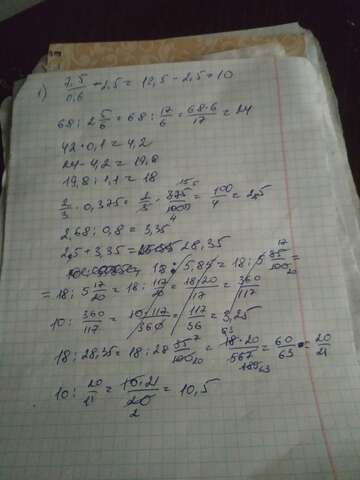 1) 7,5/0,6 - 2,5 = 12,5 - 2,5 = 10
68 : 2 5/6 = 68 : 17/6 = 68·6/17 = 24
42 · 0,1 = 4,2
24 - 4,2 = 19,8
19,8 : 1,1 = 18
2/3 · 0,375 = 2/3 · 375/1000 = 100/4 = 25
2,68 : 0,8 = 3,35
25 + 3,35 = 28,35
18 : 5,85 = 18 : 5 85/100 =
= 18 : 5 17/20 = 18 : 117/20 = 18·20/117 = 360/117
10 : 360/117 = 10·117/360 = 117/36 = 3,25
18 : 28,35 = 18 : 28 35/100 = 18·20/567 = 60/63 = 20/21
10 : 20/21 = 10·21/20 = 10,5